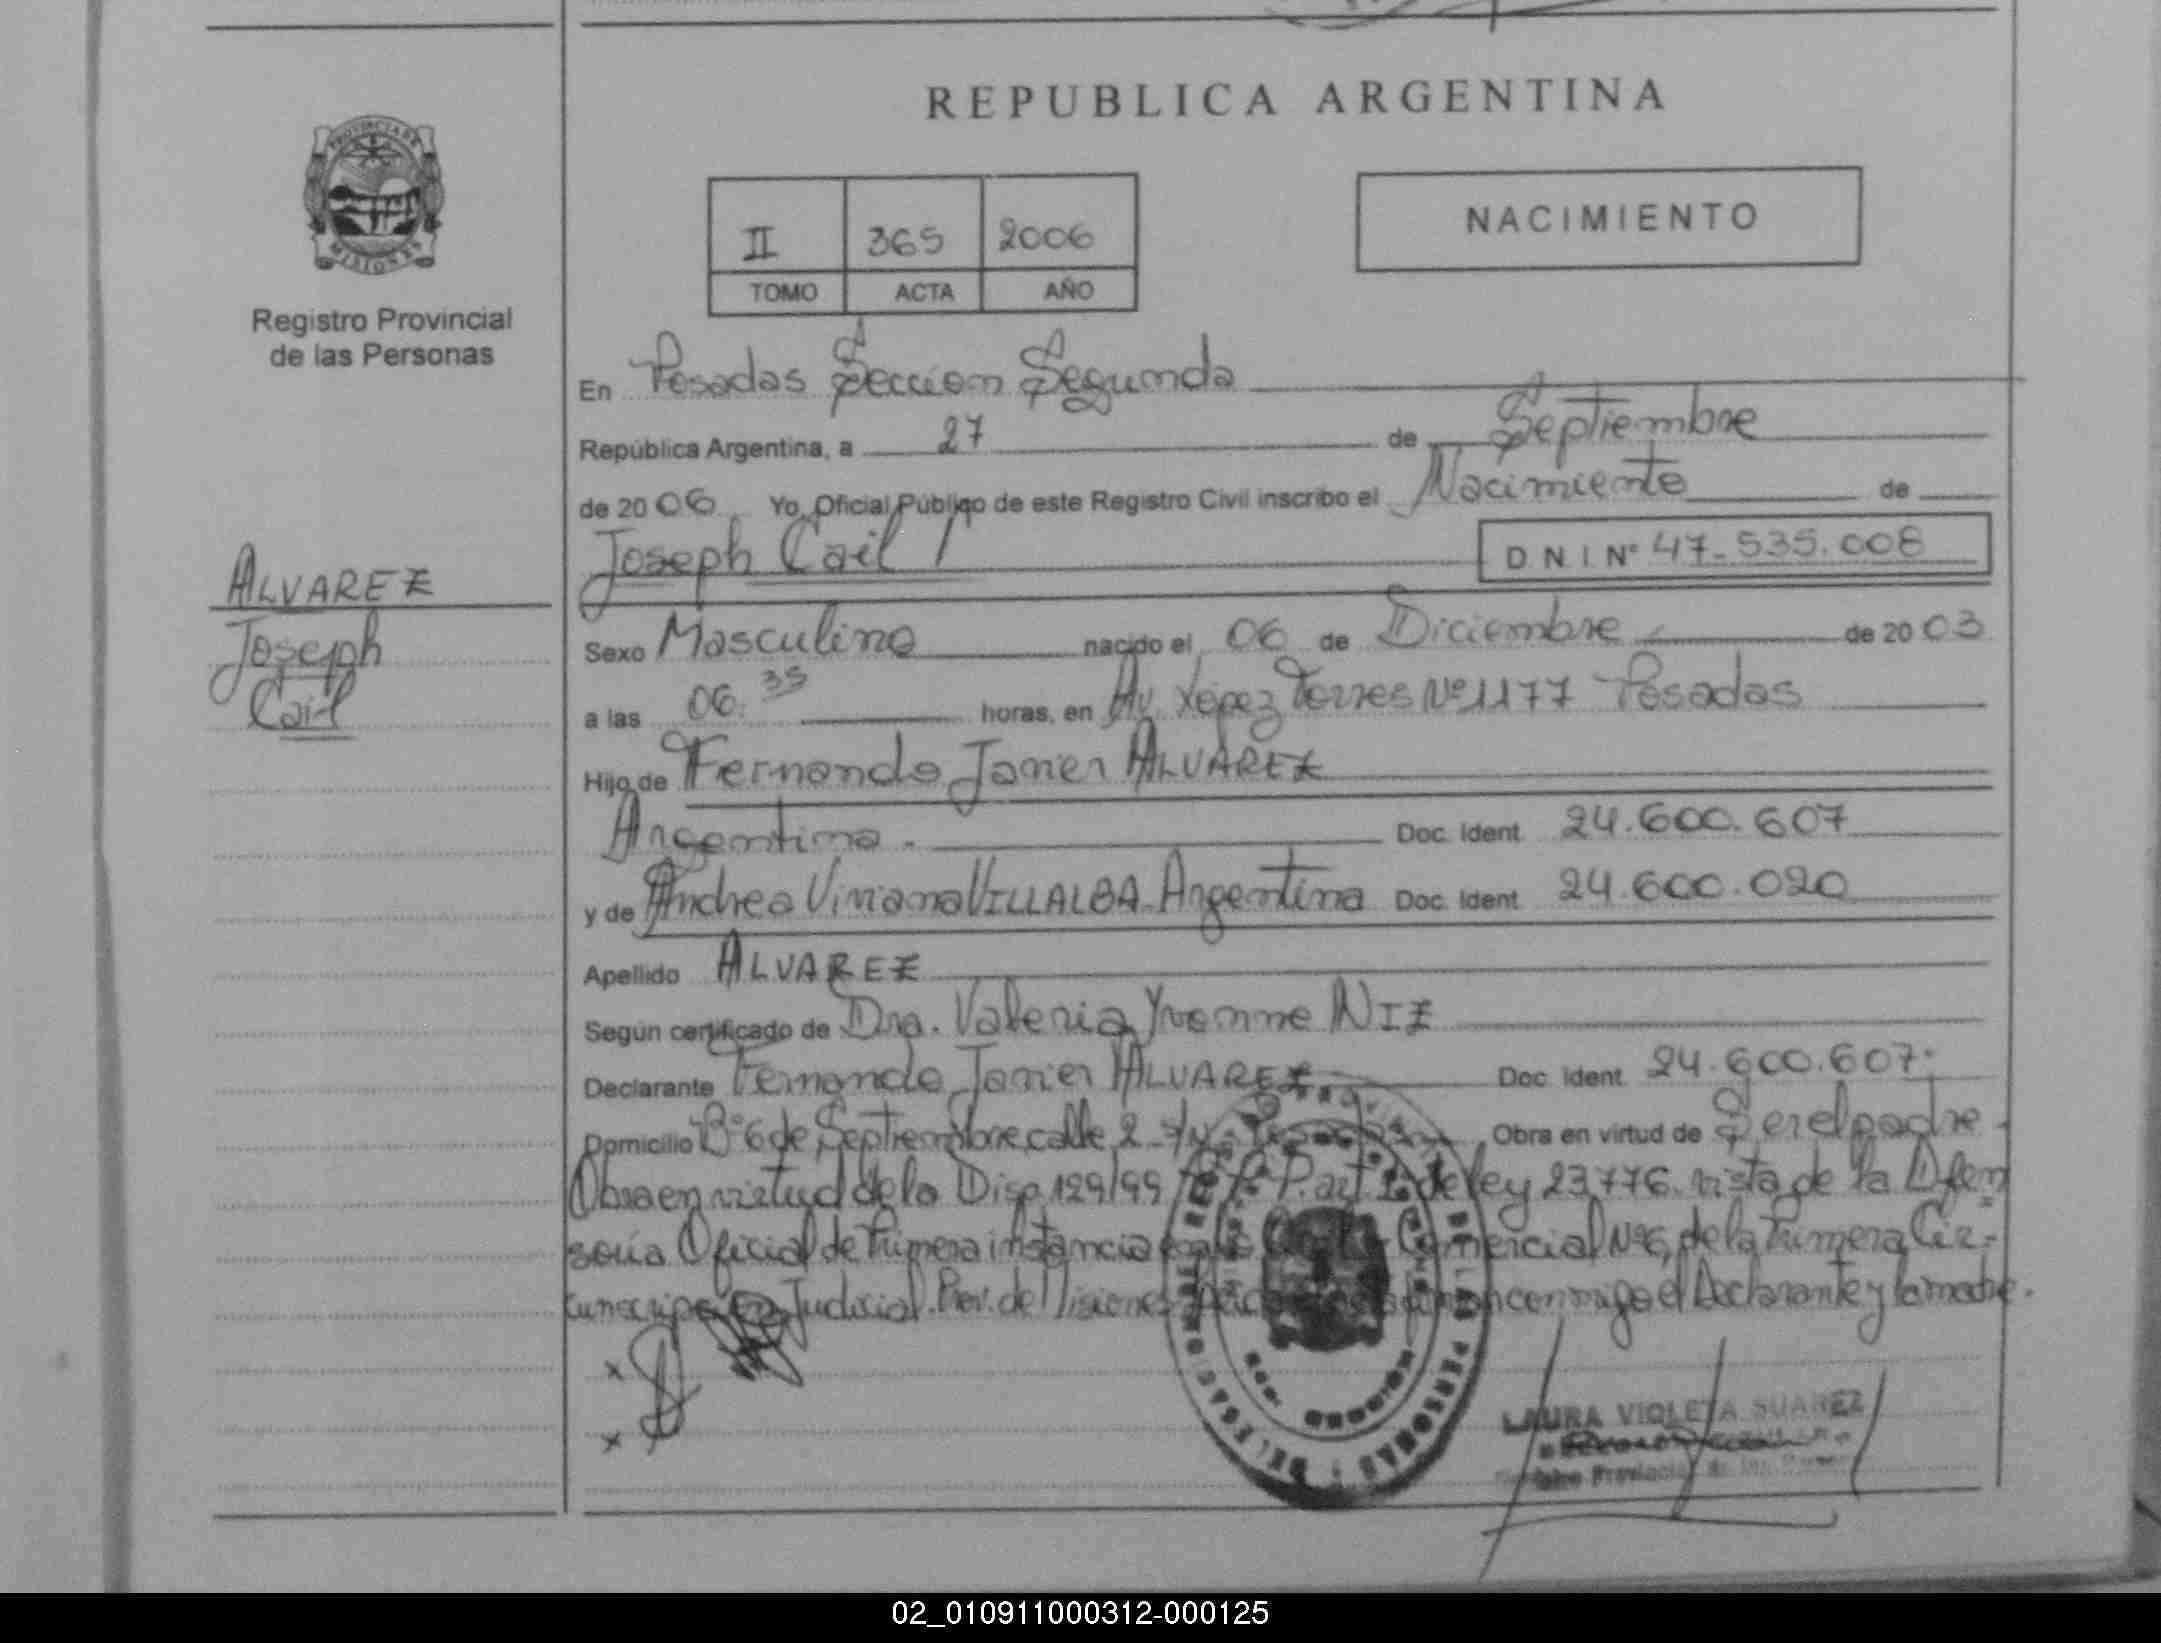 REPUBLICA ARGENTINA
PROVINCIA DE
MISIONES
Registro Provincial
de las Personas
II 365 2006
TOMO ACTA AÑO
NACIMIENTO
En Posadas Seccion Segunda
República Argentina, a 27 de Septiembre
de 20 06 Yo, Oficial Público de este Registro Civil inscribo el Nacimiento de
Joseph Cail D N I. Nº 47.535.008
ALVAREZ
Joseph
Cail
Sexo Masculino nacido el 06 de Diciembre de 20 03
a las 06.35 horas, en Av. López Torres Nº 1177 Posadas
Hijo de Fernando Javier ALVAREZ
Argentina. Doc. Ident 24.600.607
y de Andrea Viviana VILLALBA. Argentina Doc. Ident 24.600.020
Apellido ALVAREZ
Según certificado de Dra. Valeria Yvonne NIZ
Declarante Fernando Javier ALVAREZ Doc. Ident. 24.600.607.
Domicilio Bº 6 de Septiembre calle 2 S/Nº Obra en virtud de Ser el padre.
Obra en virtud de la Disp. 129/99 R.P.P. art. de ley 23.776. vista de la Defen
soría Oficial de Primera instancia Comercial Nº 6, de la Primera Cir-
cunscripción Judicial. Prov. de Misiones conmigo el Declarante y la madre.
x
x
PERSONAS
LAURA VIOLETA SUAREZ
Provincial de las Personas
02_010911000312-000125